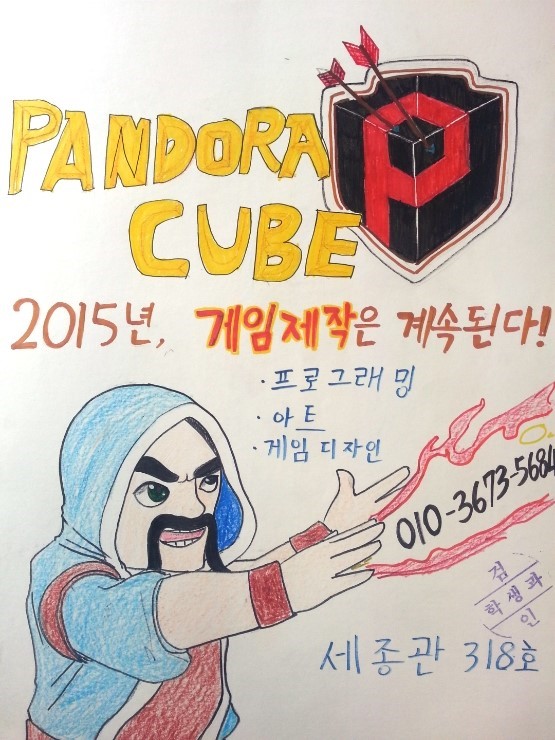 PANDORA
CUBE
P
2015년, 게임제작은 계속된다!
· 프로그래밍
· 아트
· 게임 디자인
010-3673-5684
검
학생과
인
세종관 318호